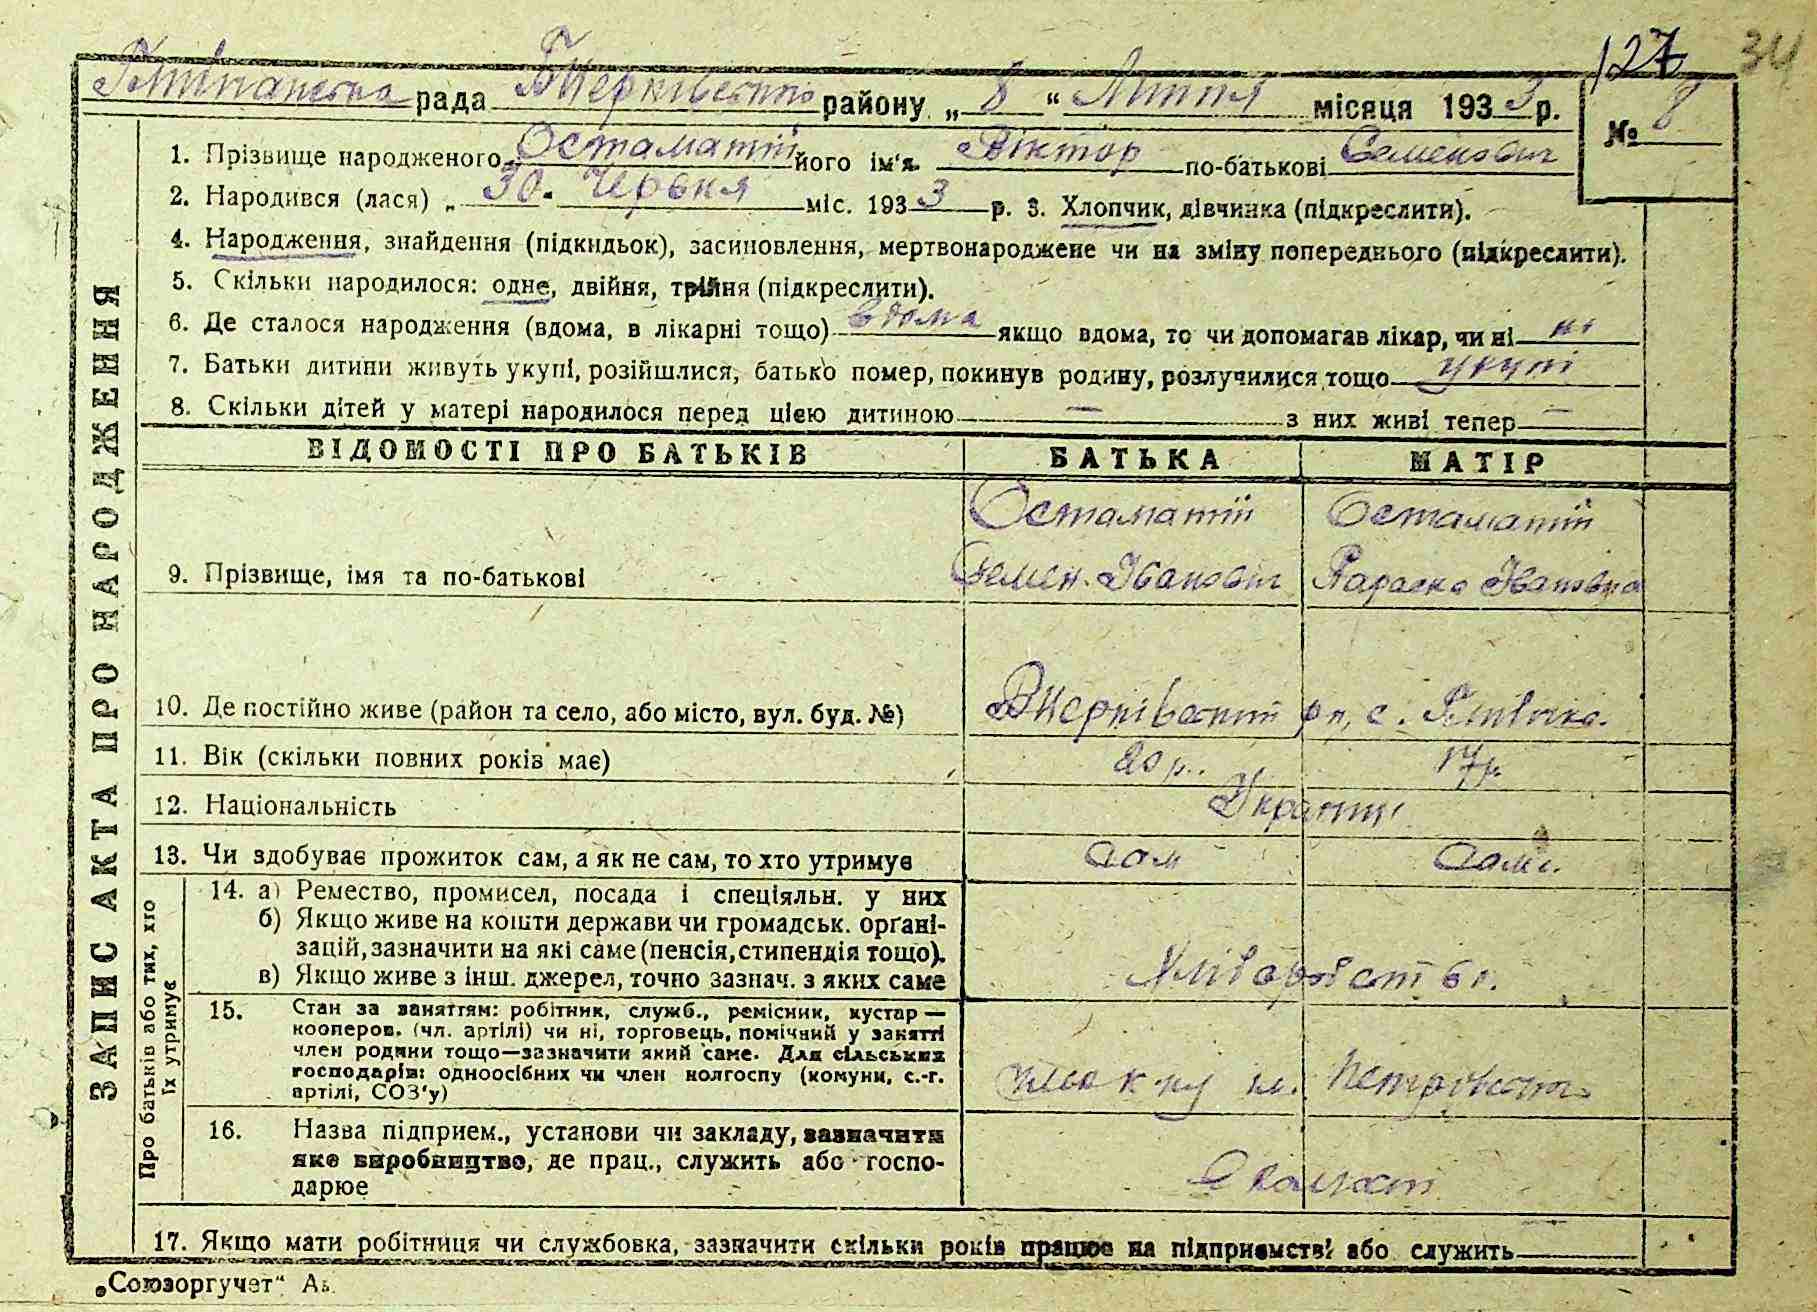 127 34
рада району „ 8 “ Липня місяця 1933 р.
№ 8
1. Прізвище народженого Остаматій його ім'я Віктор по-батькові Семенович
2. Народився (лася) „ 30 " Червня міс. 1933 р. 3. Хлопчик, дівчинка (підкреслити).
4. Народження, знайдення (підкидьок), засиновлення, мертвонароджене чи на зміну попереднього (підкреслити).
5. Скільки народилося: одне, двійня, трійня (підкреслити).
6. Де сталося народження (вдома, в лікарні тощо) вдома якщо вдома, то чи допомагав лікар, чи ні ні
7. Батьки дитини живуть укупі, розійшлися, батько помер, покинув родину, розлучилися тощо укупі
8. Скільки дітей у матері народилося перед цією дитиною — з них живі тепер —
ЗАПИС АКТА ПРО НАРОДЖЕННЯ
ВІДОМОСТІ ПРО БАТЬКІВ БАТЬКА МАТІР
Остаматій Остаматій
9. Прізвище, імя та по-батькові Семен Іванович Параска Івановна
10. Де постійно живе (район та село, або місто, вул. буд. №) рн, с.
11. Вік (скільки повних років має) 20 р. 17 р.
12. Національність Українці
13. Чи здобуває прожиток сам, а як не сам, то хто утримує Сам Сама
Про батьків або тих, хто їх утримує
14. а) Ремество, промисел, посада і спеціяльн. у них
б) Якщо живе на кошти держави чи громадськ. організацій, зазначити на які саме (пенсія, стипендія тощо).
в) Якщо живе з інш. джерел, точно зазнач. з яких саме Хліборобство
15. Стан за заняттям: робітник, служб., ремісник, кустар—
кооперов. (чл. артілі) чи ні, торговець, помічний у занятті
член родини тощо—зазначити який саме. Для сільських
господарів: одноосібних чи член колгоспу (комуни, с.-г.
артілі, СОЗ'у) ім. Петровського
16. Назва підприєм., установи чи закладу, зазначити
яке виробництво, де прац., служить або госпо-
дарює
17. Якщо мати робітниця чи службовка, зазначити скільки років працює на підприємстві або служить
„Союзоргучет“